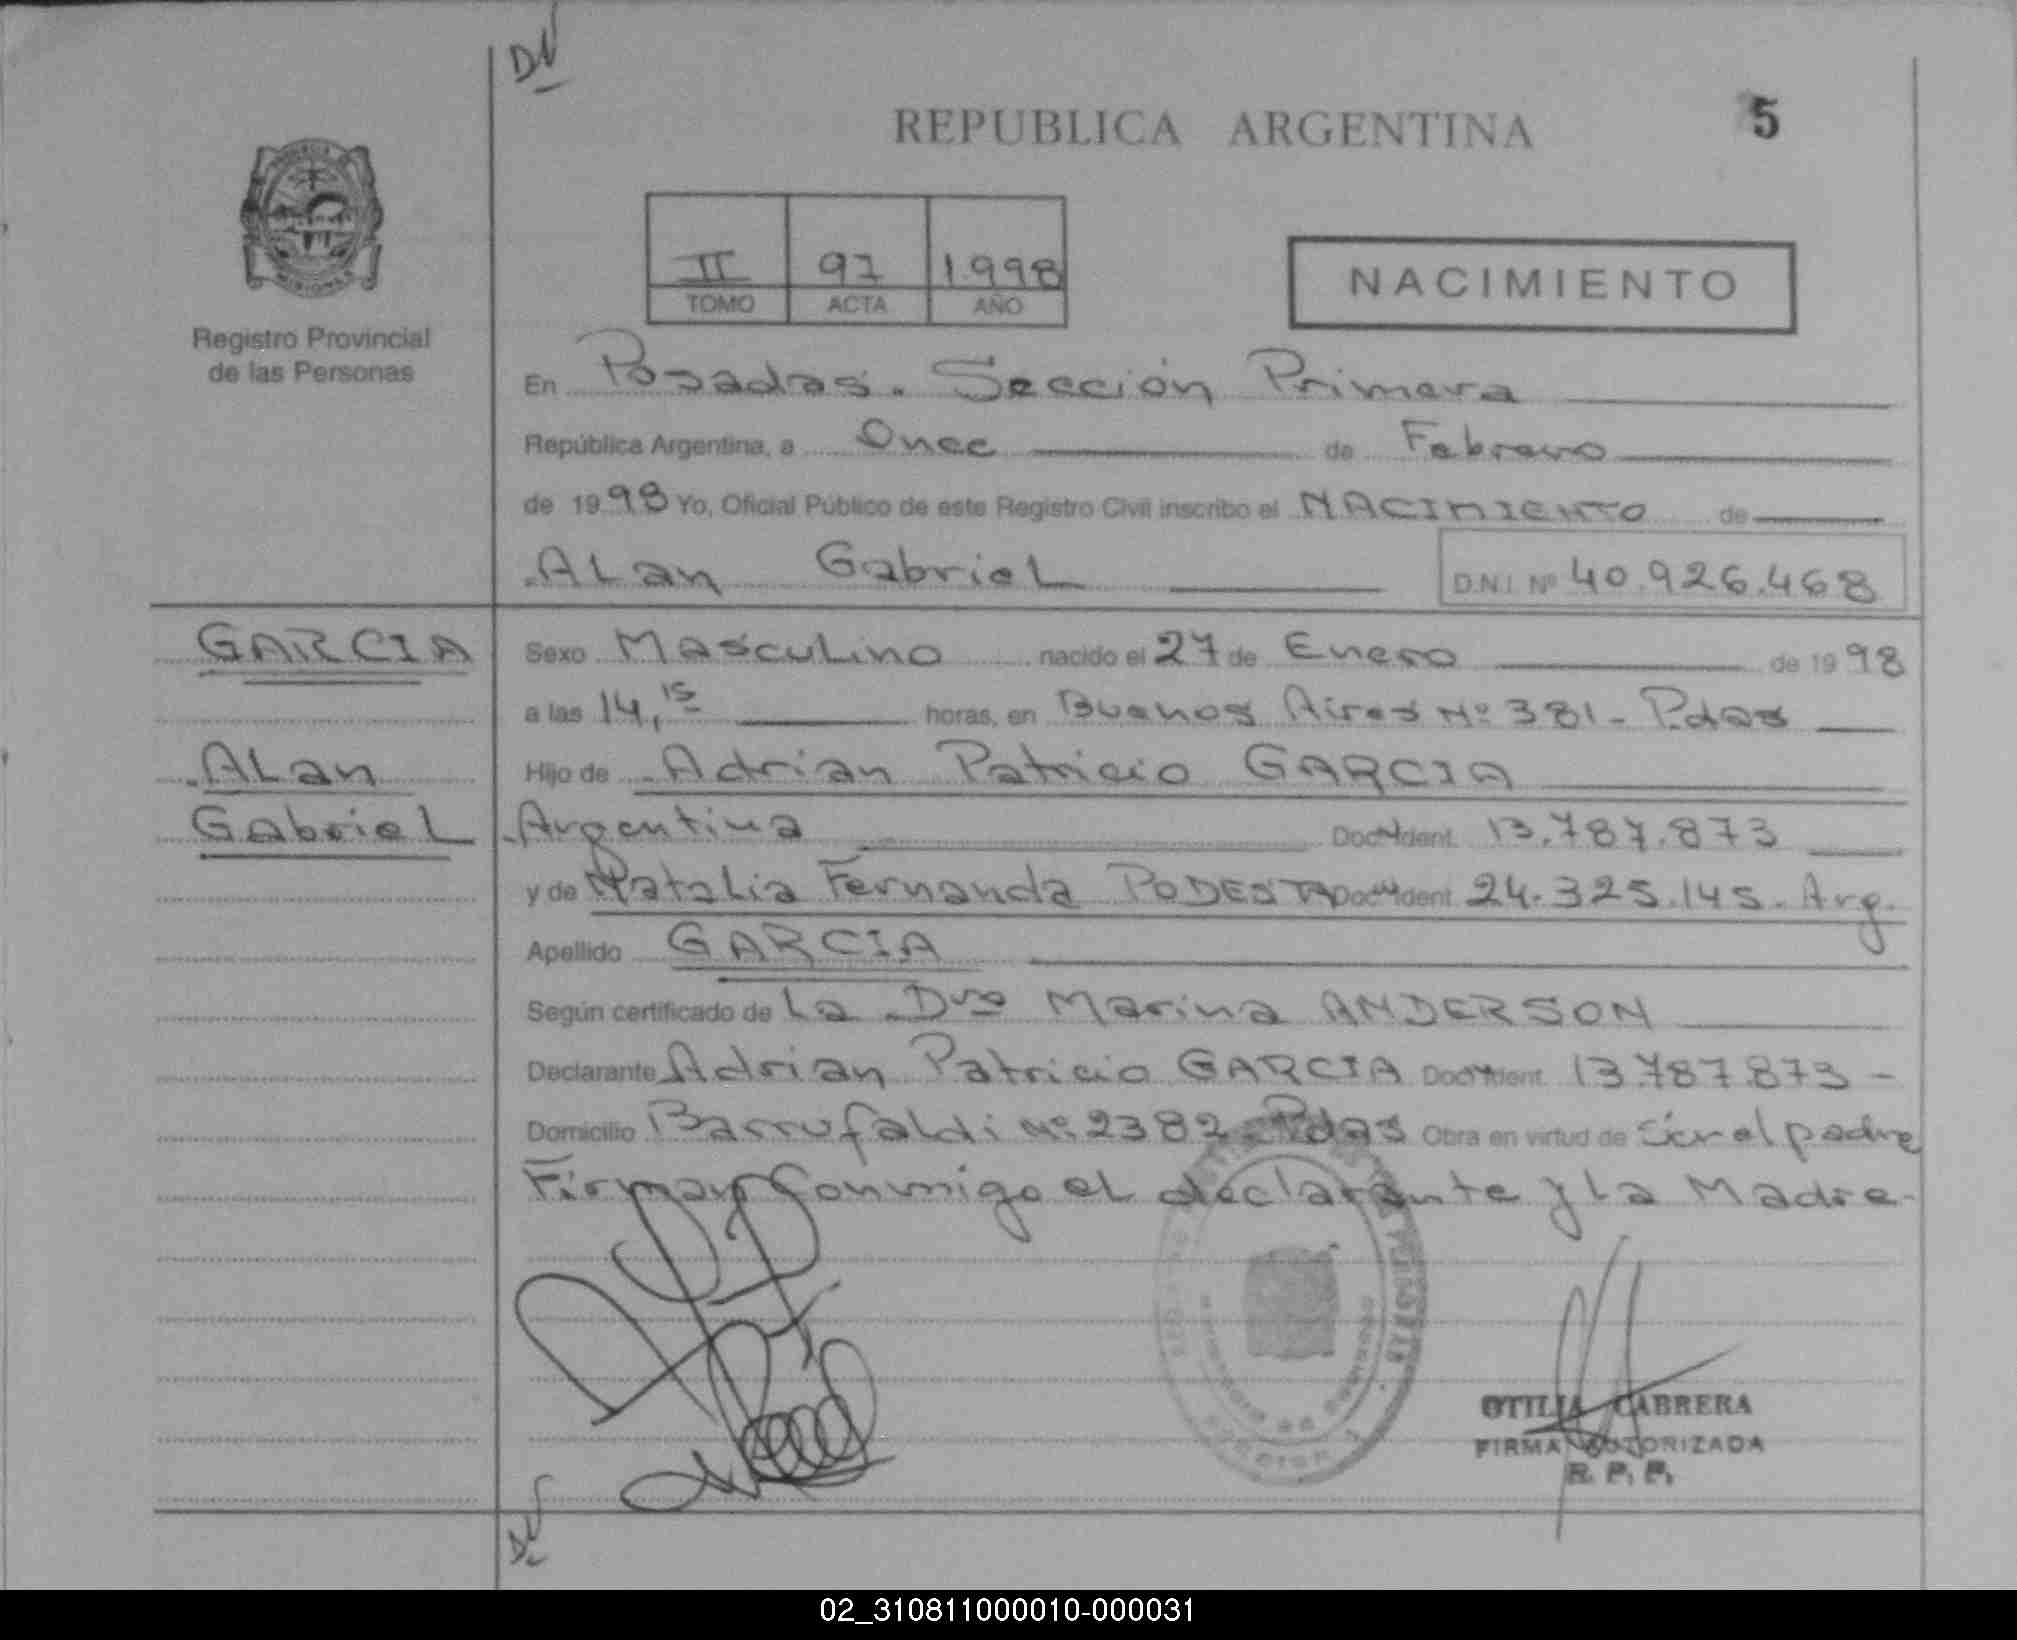 DV
REPUBLICA ARGENTINA
5
Registro Provincial
de las Personas
II 97 1.998
TOMO ACTA AÑO
NACIMIENTO
En Posadas. Sección Primera
República Argentina, a Once de Febrero
de 1998 Yo, Oficial Público de este Registro Civil inscribo el NACIMIENTO de
Alan Gabriel D.N.I. Nº 40.926.468
GARCIA
Alan
Gabriel
Sexo Masculino nacido el 27 de Enero de 1998
a las 14,15 horas, en Buenos Aires Nº 381 - Pdas
Hijo de Adrian Patricio GARCIA
Argentina Doc. Ident. 13.787.873
y de Natalia Fernanda PODESTA Doc. Ident. 24.325.145. Arg.
Apellido GARCIA
Según certificado de La Dra Marina ANDERSON
Declarante Adrian Patricio GARCIA Doc. Ident. 13.787.873 -
Domicilio Barrufaldi Nº 2382 - Pdas Obra en virtud de ser el padre
Firman Conmigo el declarante y La Madre-
OTILIA CABRERA
FIRMA AUTORIZADA
R. P. P.
DV
02_310811000010-000031